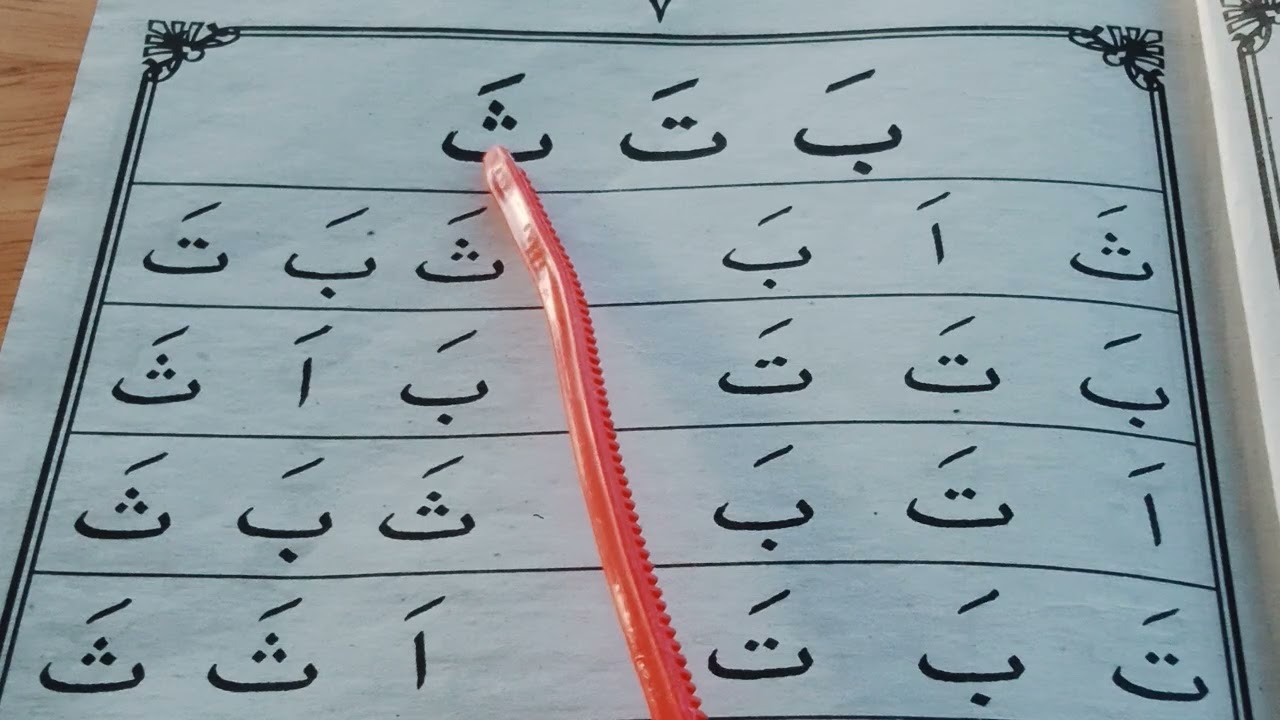 ٧
بَ تَ ثَ
ثَ اَ بَ ثَ بَ تَ
بَ تَ تَ بَ اَ ثَ
اَ تَ بَ ثَ بَ ثَ
تَ بَ تَ اَ ثَ ثَ